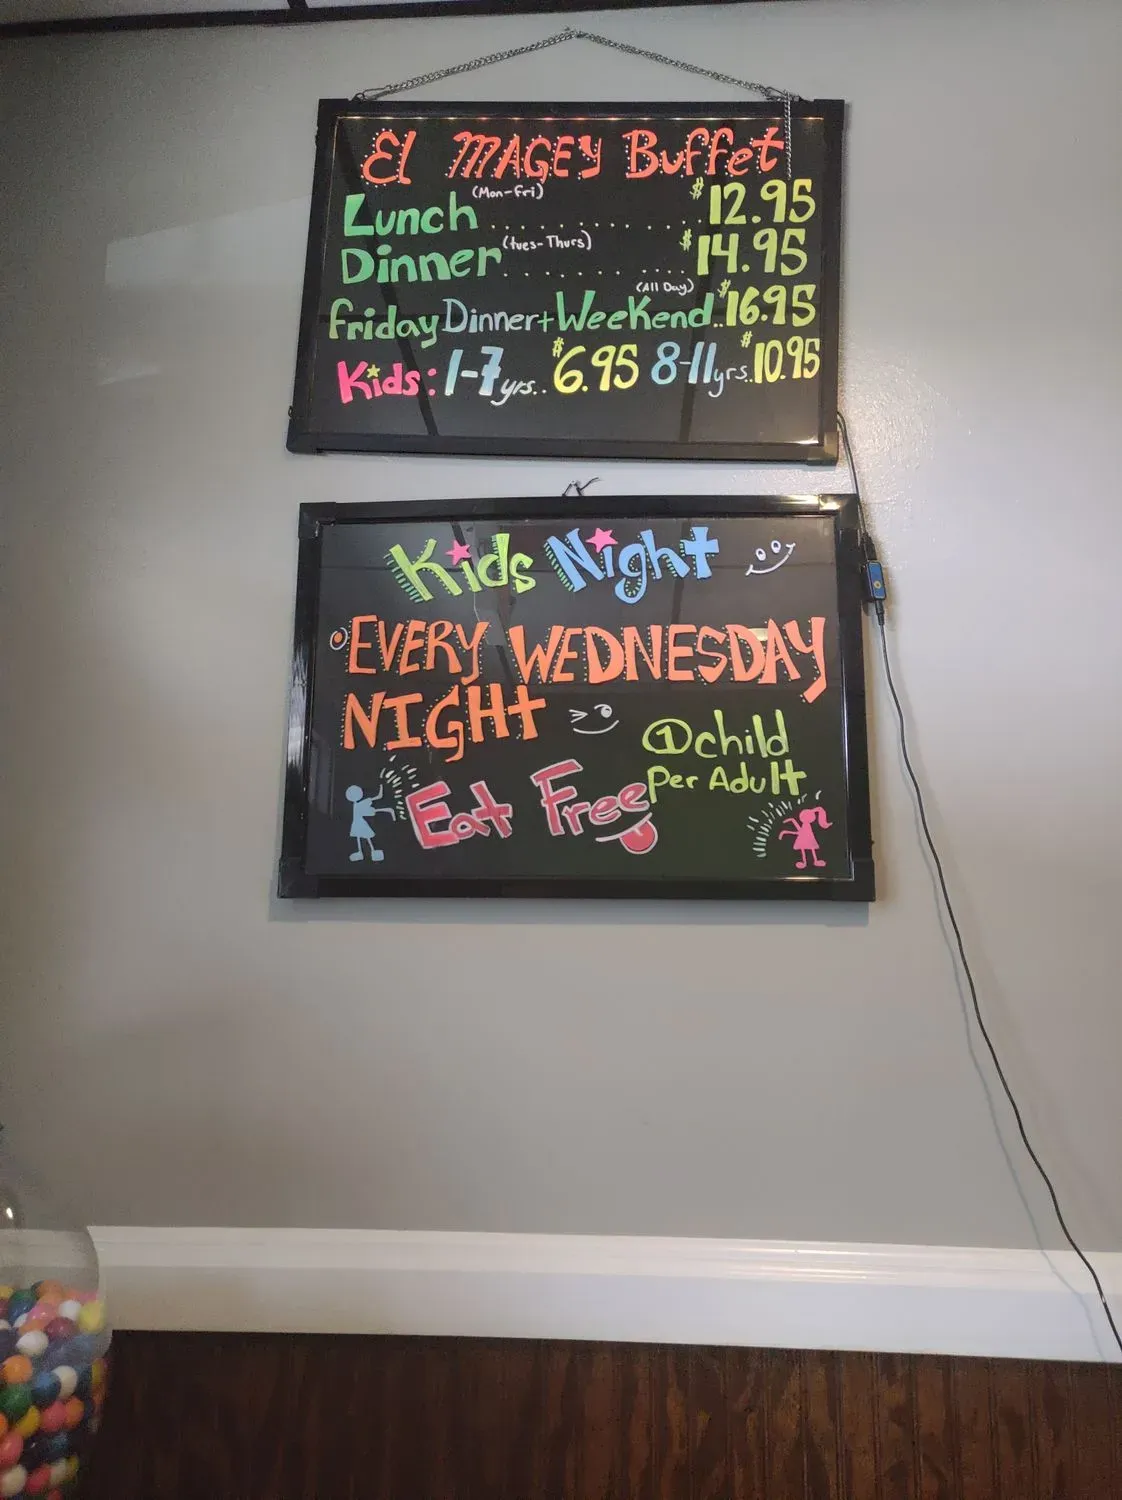 El MAGEY Buffet
Lunch (Mon-Fri) .......... $12.95
Dinner (tues-Thurs) .......... $14.95
Friday Dinner+Weekend (All Day) ..$16.95
Kids: 1-7yrs.. $6.95 8-11yrs.. $10.95
Kids Night
EVERY WEDNESDAY
NIGHT
① child
Per Adult
Eat Free